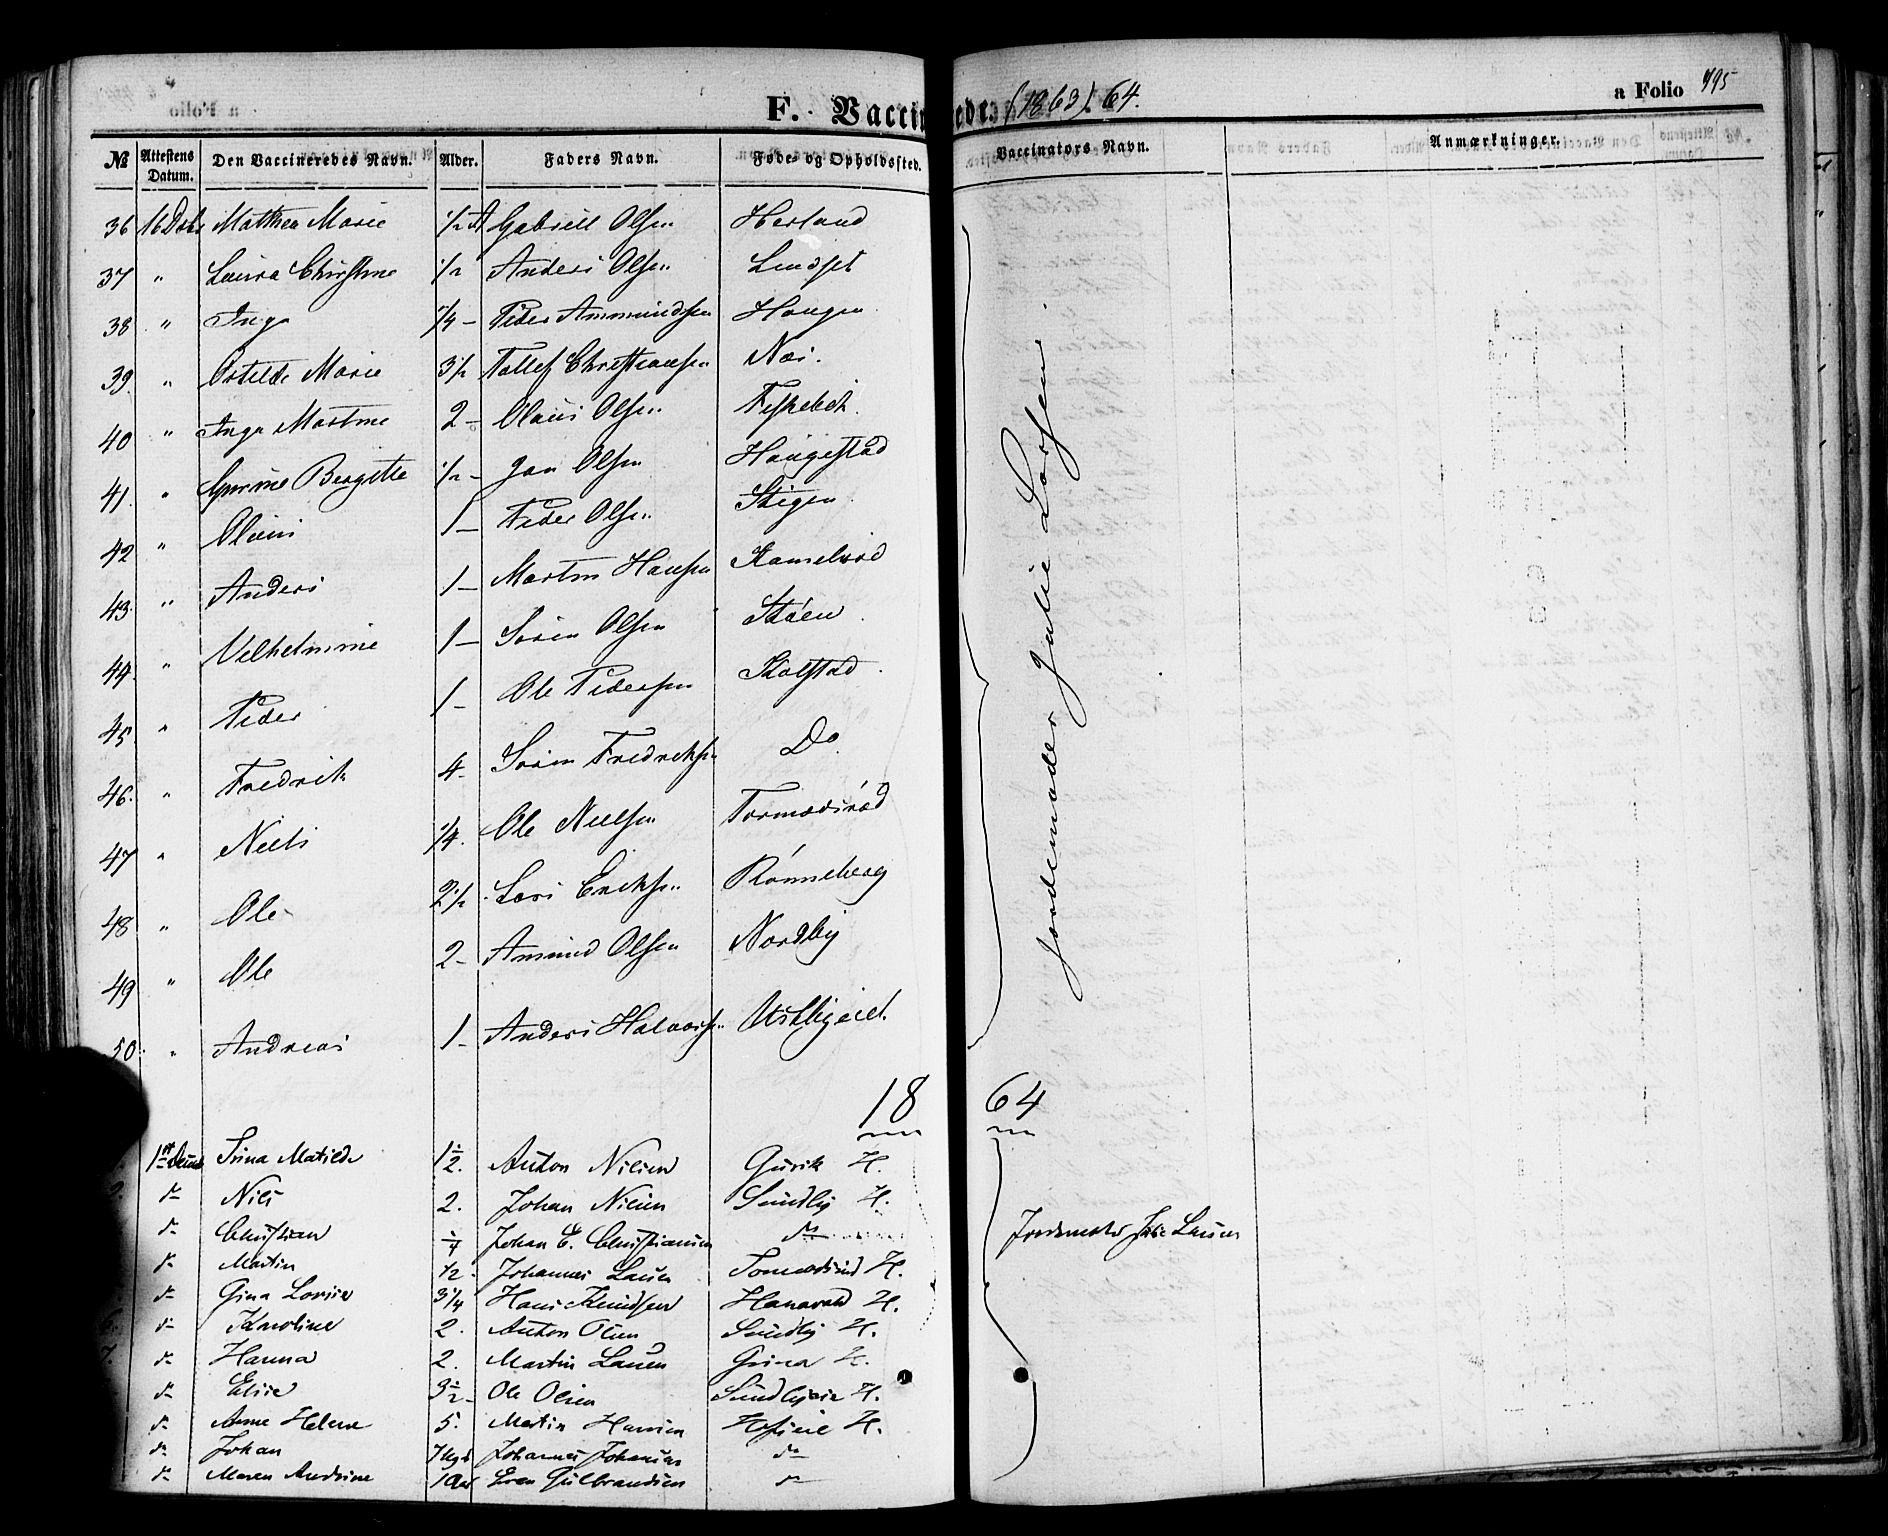 F. Vaccinerede (1863). 64.
a Folio 495
№ Attestens Datum. Den Vaccineredes Navn. Alder. Faders Navn. Føde- og Opholdssted. Vaccinators Navn. Anmærkninger.
36 16 Dcbr Mathea Marie 1/2 A Gabriell Olsen Herland
37 " Laura Christine 1/2 Anders Olsen Lindset
38 " Inga 1/4 - Peder Ammundsen Haugen
39 " Marie 3 1/2 Tollef Christiansen Næs.
40 " Inga Martine 2 - Olaus Olsen Fiskebek.
41. " Bergitte 1/2 - Jan Olsen Haugestad
42 " Olaus 1 - Peder Olsen Stigen
43. " Anders 1 - Martin Hansen
44. " Vilhelmine 1 - Søren Olsen Støen
45. " Peder 1 - Ole Pedersen Skolstad
46. " Fredrik 4 - Søren Fredriksen Do.
47 " Niels 1/4. Ole Nielsen Tormodsrød
48 " Ole 2 1/2 Lars Eriksen Rønneberg
49 " Ole 2 - Amund Olsen Nordby
50. " Andreas 1 - Anders Halvorsen
Jordemoder Julie Larsen
1864
1ste Trina Matilde 1 1/2. Anton Nilsen Gusvik H.
do Nils 2. Johan Nilsen Sundby H.
do Christian 1/4 Johan C. Christiansen do
do Martin 1/2 Johannes Larsen H.
Jordemoder Julie Larsen
do Gina Lovise 3 1/4 Hans Knudsen H.
do Karoline 2. Anton Olsen Sundby H.
do Hanna 2. Martin Larsen Grina H.
do Elise 3 1/2 Ole Olsen H.
do Anne Helene 5. Martin Hansen H.
do Johan 7 Johannes Johansen do
do Maren Andrine 1 Aar Even Gulbrandsen do